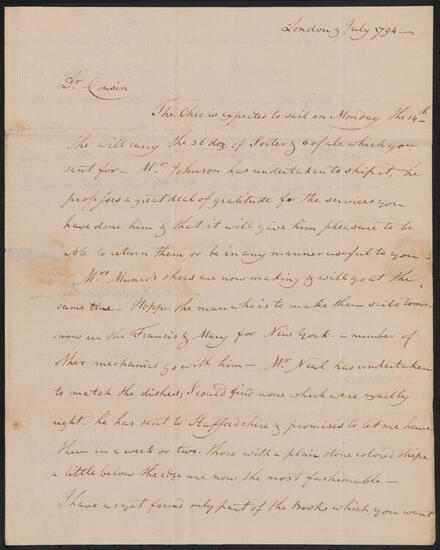 London 9 July 1794—
Dr. Cousin
The Ohio is expected to sail on Monday the 14th
She will carry the 36 doz. of Porter & 6 of ale which you
sent for— Mr Johnson has undertaken to ship it, he
professes a great deal of gratitude for the services you
have done him & that it will give him pleasure to be
able to return them or be in any manner useful to you—
Mrs shoes are now making & will go at the
same time— the man who is to make them sails tomor-
row in the Francis & Mary for New York. a number of
other mechanics go with him— Mr Neal has undertaken
to match the dishes, I could find none which were exactly
right. he has sent to Staffordshire & promises to let me have
them in a week or two. those with a plain stone colored stripe
a little below the edge are now the most fashionable—
I have as yet found only part of the Books which you want